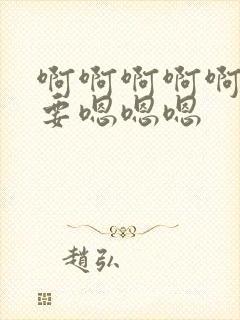 啊啊啊啊啊
要嗯嗯嗯
趙弘